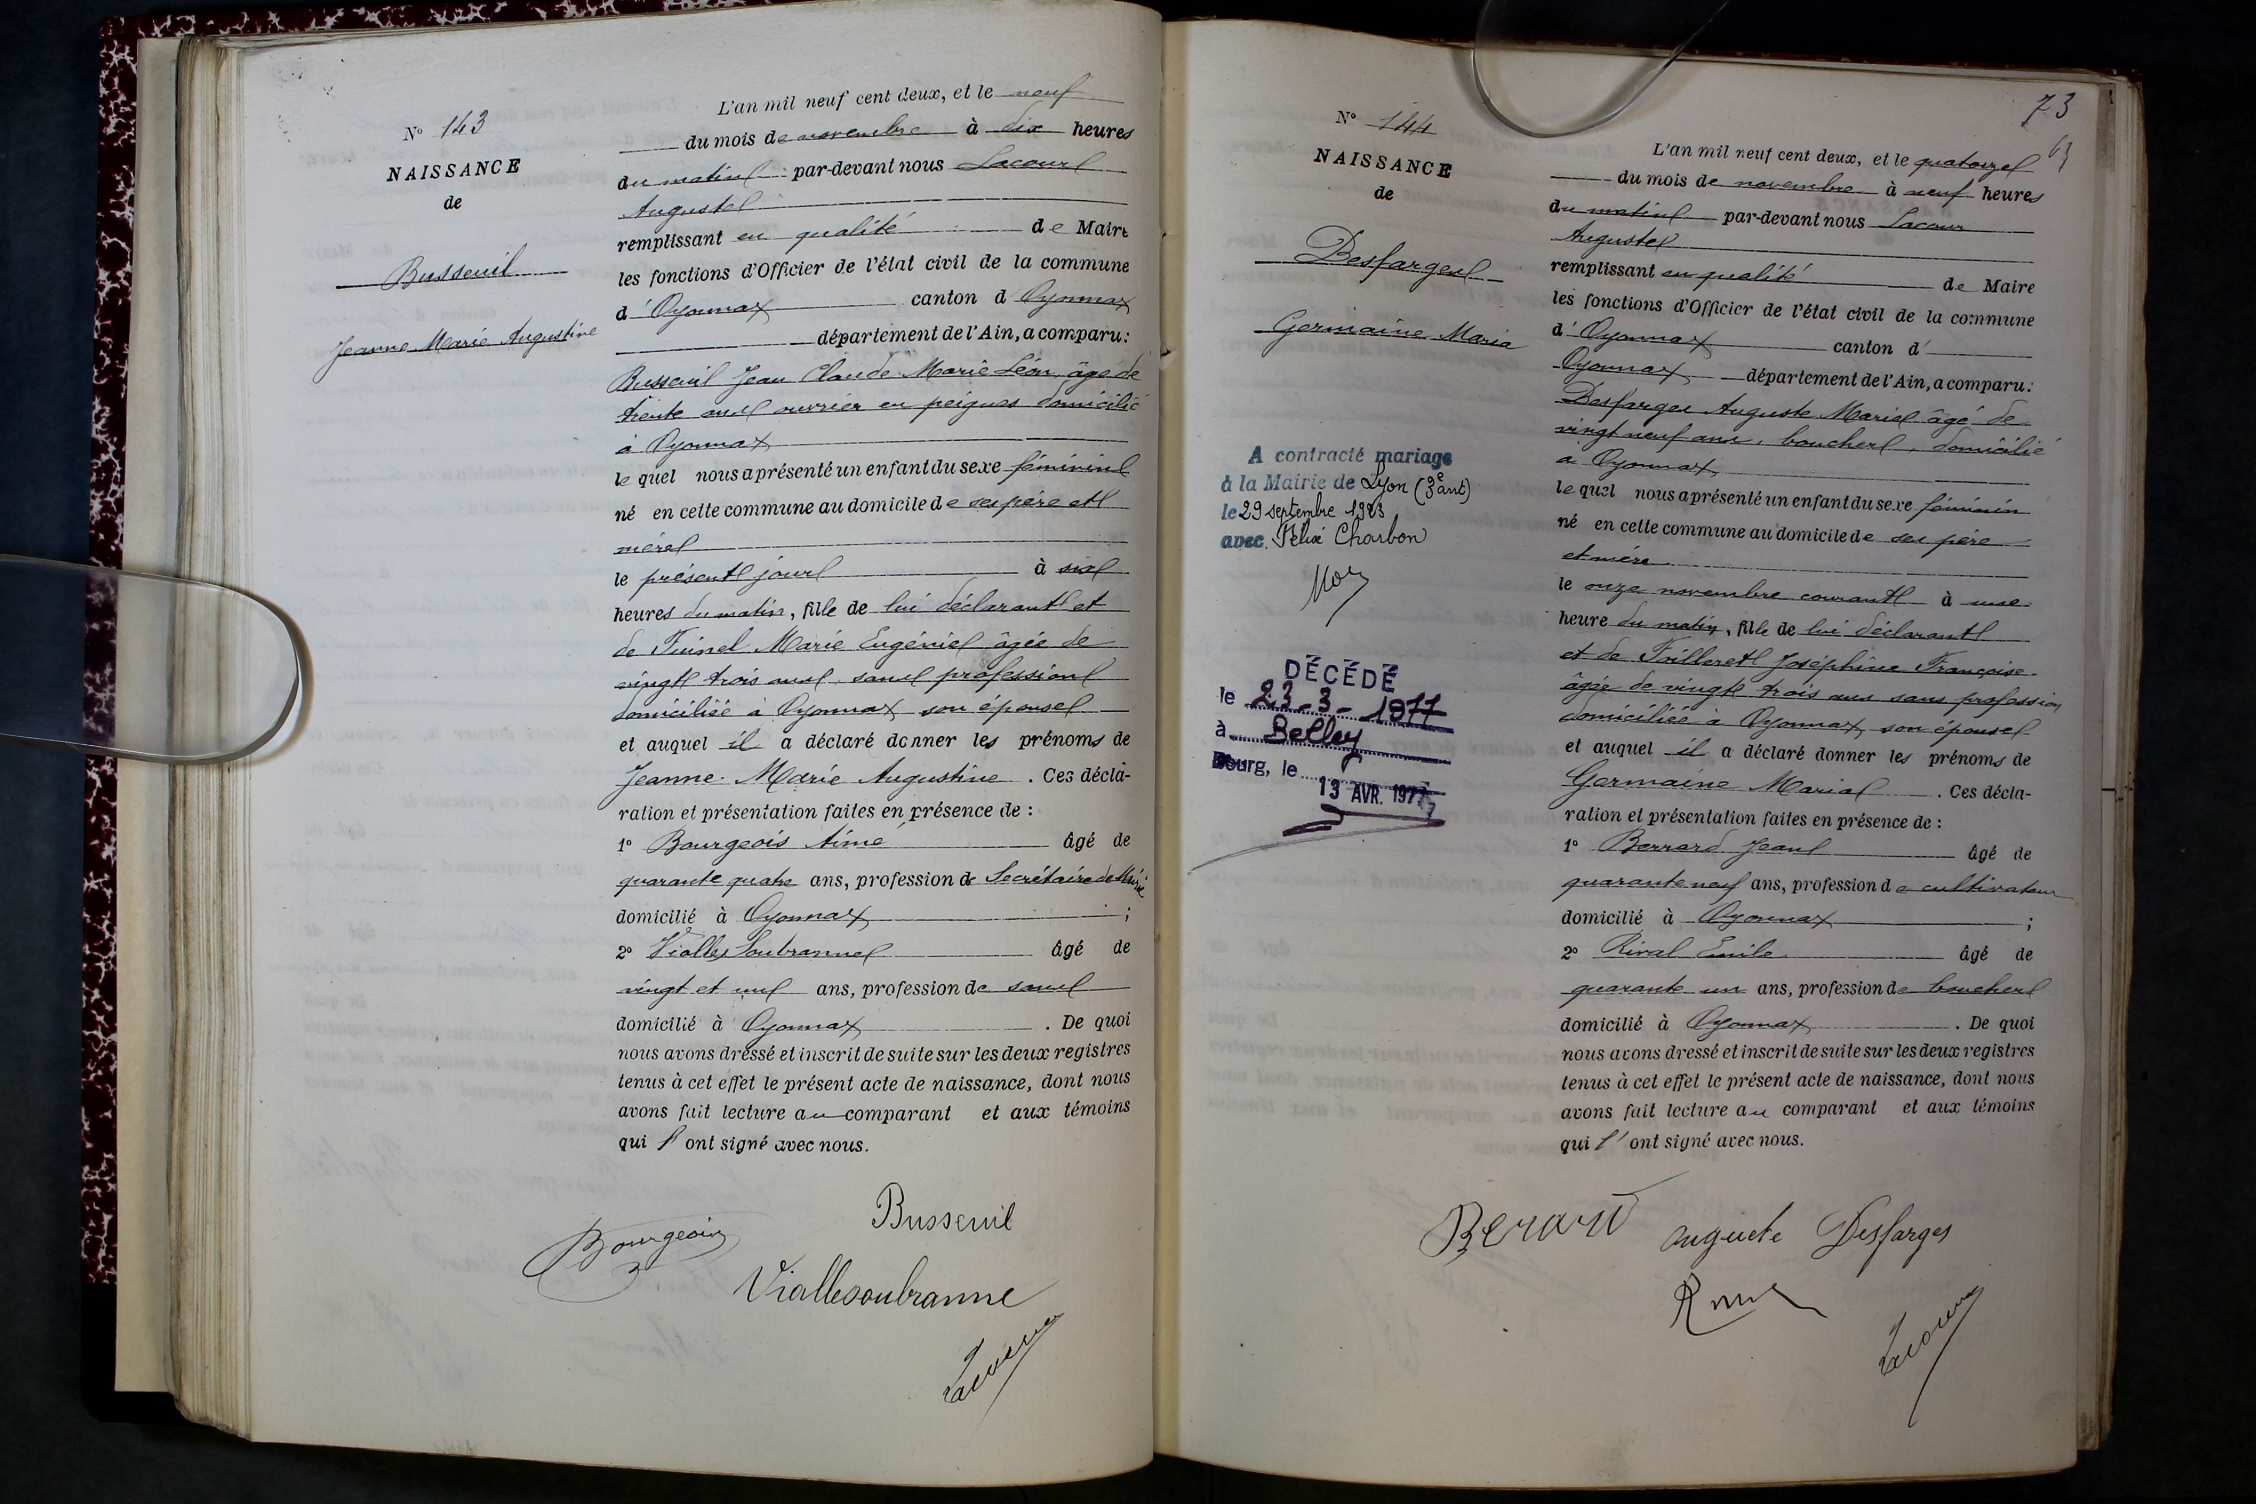 N° 143
NAISSANCE
de
Busseuil
Jeanne Marie Augustine
L'an mil neuf cent deux, et le neuf
du mois de novembre à dix heures
du matin par-devant nous Lacour
Auguste
remplissant en qualité de Maire
les fonctions d'Officier de l'état civil de la commune
d'Oyonnax canton d'Oyonnax
département de l'Ain, a comparu:
Busseuil Jean Claude Marie Léon, âgé de
trente ans ouvrier en peignes domicilié
à Oyonnax
lequel nous a présenté un enfant du sexe féminin
né en cette commune au domicile de ses père et
mère
le présent jour à six
heures du matin, fille de lui déclarant et
de Marie Eugénie âgée de
vingt trois ans sans profession
domiciliée à Oyonnax son épouse
et auquel il a déclaré donner les prénoms de
Jeanne Marie Augustine. Ces décla-
ration et présentation faites en présence de :
1° Bourgeois Aimé âgé de
quarante quatre ans, profession de Secrétaire de Mairie
domicilié à Oyonnax ;
2° Viallesoubranne âgé de
vingt et un ans, profession de sans
domicilié à Oyonnax. De quoi
nous avons dressé et inscrit de suite sur les deux registres
tenus à cet effet le présent acte de naissance, dont nous
avons fait lecture au comparant et aux témoins
qui l'ont signé avec nous.
Busseuil
Bourgeois
Viallesoubranne
Lacour
73
63
N° 144
NAISSANCE
de
Desfarges
Germaine Maria
A contracté mariage
à la Mairie de Lyon (3e art)
le 29 septembre 1923
avec Félix Charbon
DÉCÉDÉ
le 23-3-1977
à Belley
Bourg, le
13 AVR. 1977
L'an mil neuf cent deux, et le quatorze
du mois de novembre à neuf heures
du matin par-devant nous Lacour
Auguste
remplissant en qualité de Maire
les fonctions d'Officier de l'état civil de la commune
d'Oyonnax canton d'
Oyonnax département de l'Ain, a comparu:
Desfarges Auguste Marie âgé de
vingt neuf ans, boucher, domicilié
à Oyonnax
lequel nous a présenté un enfant du sexe féminin
né en cette commune au domicile de ses père
et mère
le onze novembre courant à une
heure du matin, fille de lui déclarant
et de Joséphine Françoise
âgée de vingt trois ans sans profession
domiciliée à Oyonnax, son épouse
et auquel il a déclaré donner les prénoms de
Germaine Maria. Ces décla-
ration et présentation faites en présence de :
1° Berrard Jean âgé de
quarante neuf ans, profession de cultivateur
domicilié à Oyonnax ;
2° Rival Emile âgé de
quarante un ans, profession de boucher
domicilié à Oyonnax. De quoi
nous avons dressé et inscrit de suite sur les deux registres
tenus à cet effet le présent acte de naissance, dont nous
avons fait lecture au comparant et aux témoins
qui l'ont signé avec nous.
Berard auguste Desfarges
Rival
Lacour